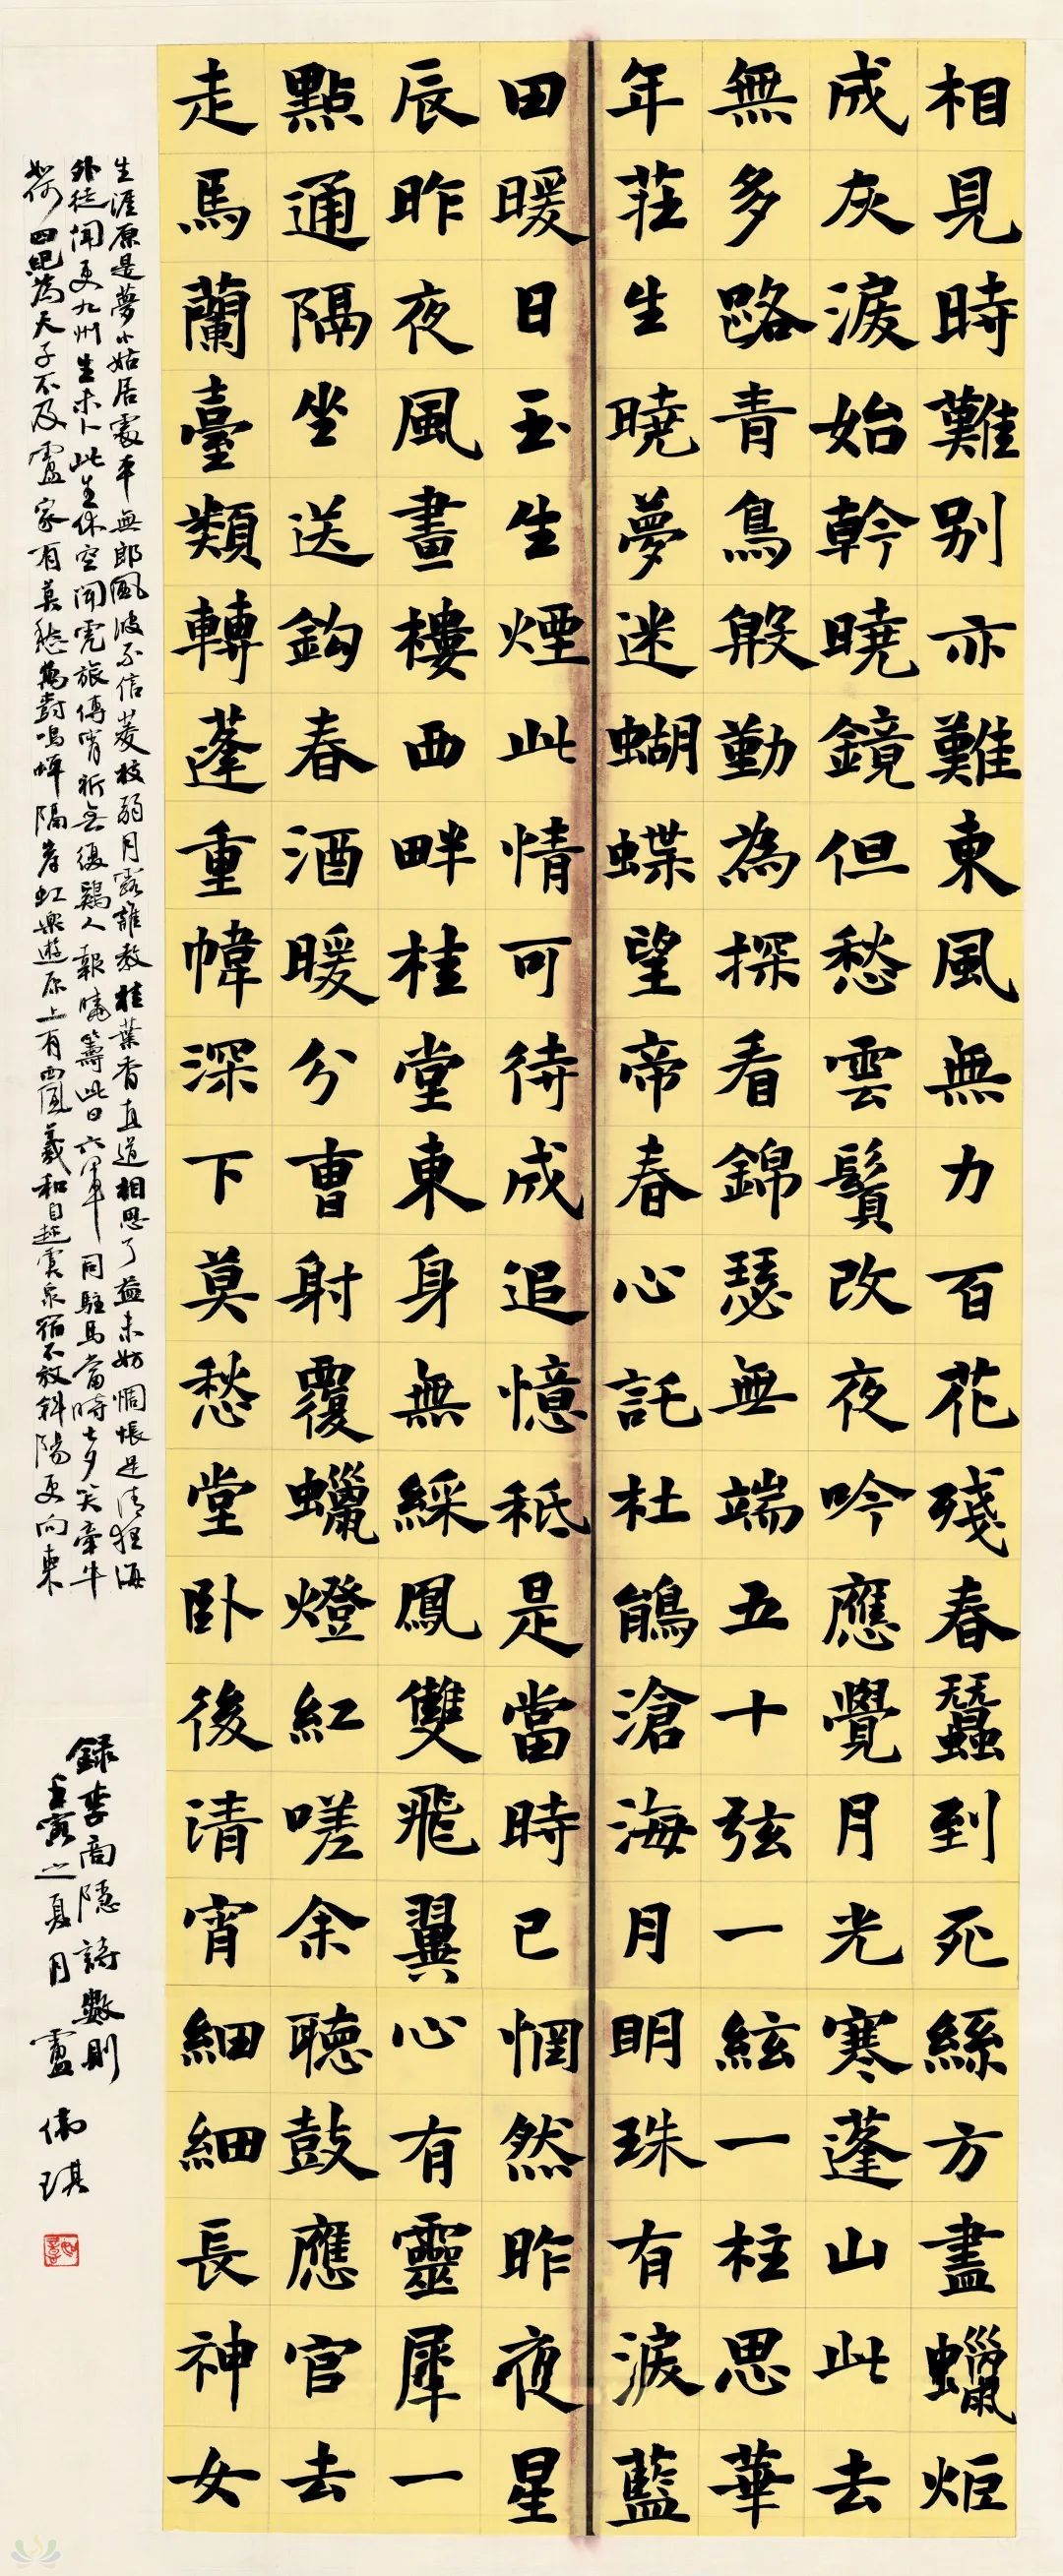 相見時難別亦難東風無力百花殘春蠶到死絲方盡蠟炬
成灰淚始幹曉鏡但愁雲鬢改夜吟應覺月光寒蓬山此去
無多路青鳥殷勤為探看錦瑟無端五十弦一絃一柱思華
年莊生曉夢迷蝴蝶望帝春心託杜鵑滄海月明珠有淚藍
田暖日玉生煙此情可待成追憶秪是當時已惘然昨夜星
辰昨夜風畫樓西畔桂堂東身無綵鳳雙飛翼心有靈犀一
點通隔坐送鈎春酒暖分曹射覆蠟燈紅嗟余聽鼓應官去
走馬蘭臺類轉蓬重幃深下莫愁堂臥後清宵細細長神女
生涯原是夢小姑居處本無郎風波不信菱枝弱月露誰教桂葉香直道相思了益未妨惆悵是清狂海
外徒聞更九州生未卜此生休空聞虎旅傳宵柝無復鷄人報曉籌此日六軍同駐馬當時七夕笑牽牛
如何四紀為天子不及盧家有莫愁萬樹鳴蟬隔岸虹樂遊原上有西風羲和自趁虞泉宿不放斜陽更向東
錄李商隱詩數則
壬寅之夏月盧琪